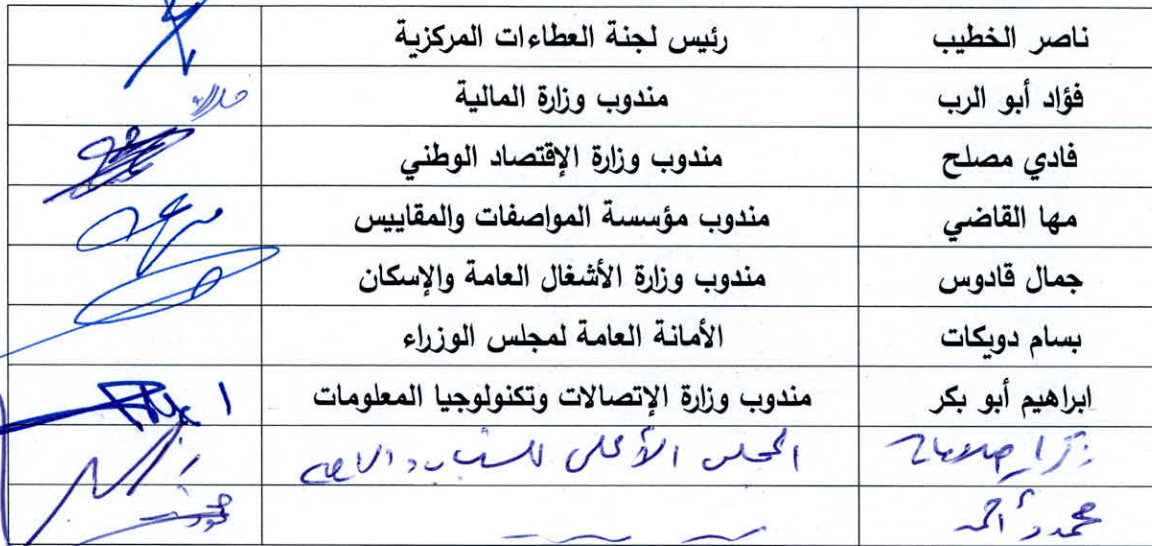 ناصر الخطيب رئيس لجنة العطاءات المركزية
فؤاد أبو الرب مندوب وزارة المالية
فادي مصلح مندوب وزارة الإقتصاد الوطني
مها القاضي مندوب مؤسسة المواصفات والمقاييس
جمال قادوس مندوب وزارة الأشغال العامة والإسكان
بسام دويكات الأمانة العامة لمجلس الوزراء
ابراهيم أبو بكر مندوب وزارة الإتصالات وتكنولوجيا المعلومات
المجلس الأعلى للشباب
محمود أحمد